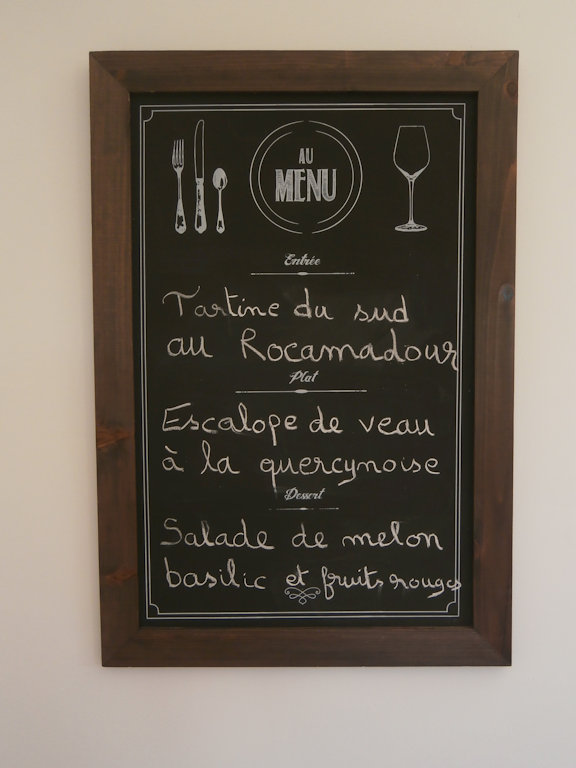 AU
MENU
Entrée
Tartine du sud
au Rocamadour
Plat
Escalope de veau
à la quercynoise
Dessert
Salade de melon
basilic et fruits rouges